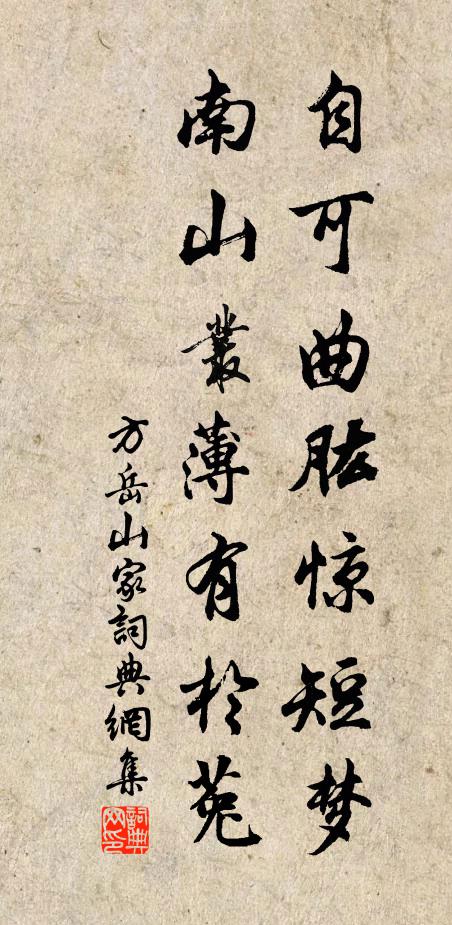 自可曲肱惊短梦
南山叢薄有於菟
方岳山家詞典網集
詞典网印